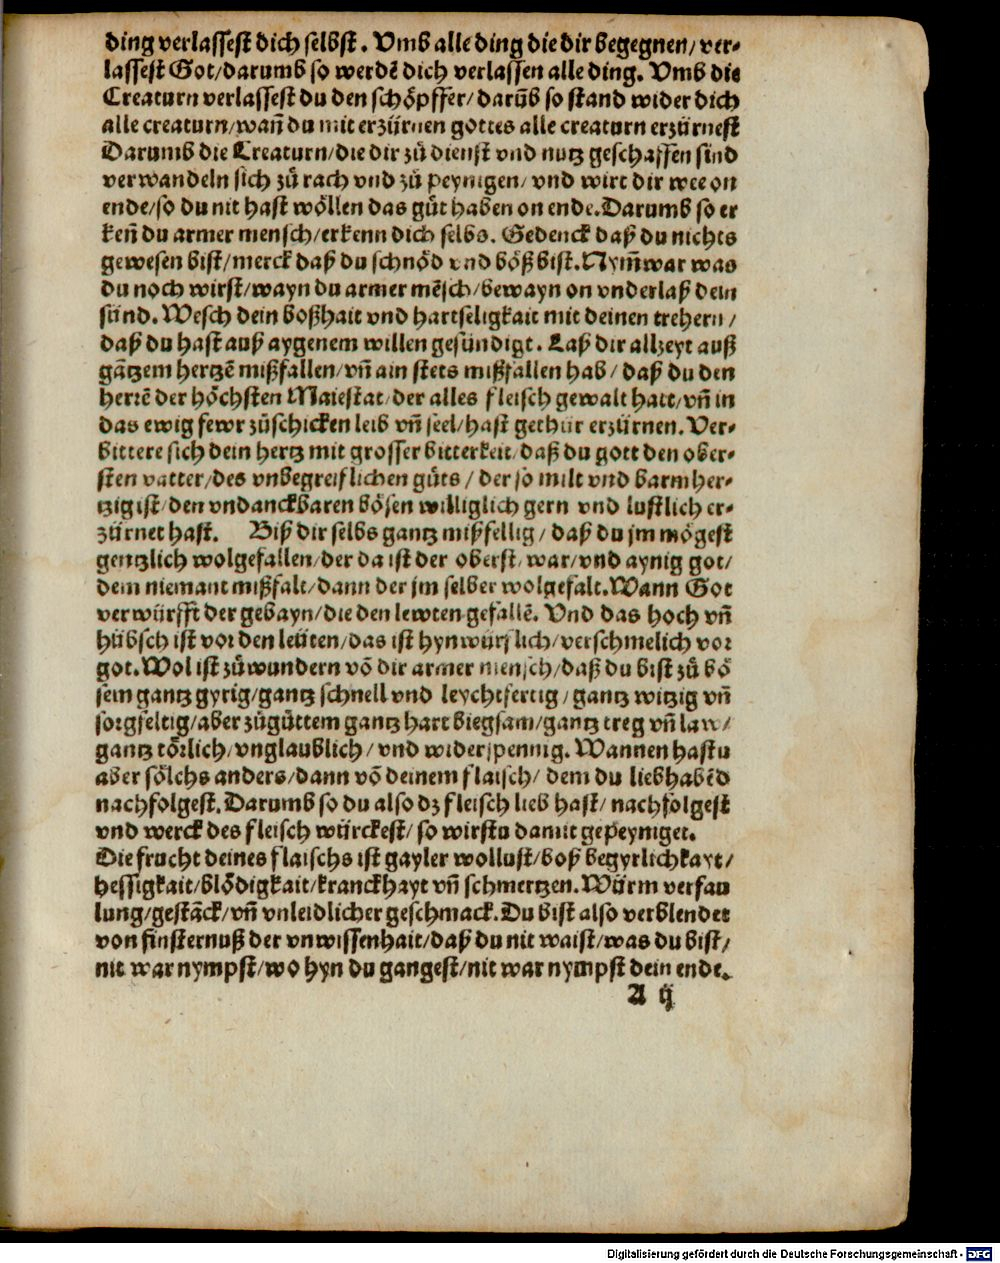 ding verlassest dich selbst. Vmb alle ding die dir begegnen/ ver⸗
lassest Got/darumb so werdē dich verlassen alle ding. Vmb die
Creaturn verlassest du den schöpffer/darūb so stand wider dich
alle creaturn/wañ du mit erzürnen gottes alle creaturn erzürnest
Darumb die Creaturn/die dir zů dienst vnd nutz geschaffen sind
verwandeln sich zů rach vnd zů peynigen/ vnd wirt dir wee on
ende/so du nit hast wöllen das gůt haben on ende. Darumb so er
keñ du armer mensch/erkenn dich selbs. Gedenck daß du nichts
gewesen bist/merck daß du schnöd vnd böß bist. Nym̄war was
du noch wirst/wayn du armer mēsch/bewayn on vnderlaß dein
sünd. Wesch dein boßhait vnd hartseligkait mit deinen trehern/
daß du hast auß aygenem willen gesündigt. Laß dir allzeyt auß
gātzem hertzē mißfallen/vñ ain stets mißfallen hab/ daß du den
herrē der höchsten Maiestat/der alles fleisch gewalt hatt/vñ in
das ewig fewr zůschicken leib vñ seel/hast gethür erzürnen. Ver⸗
bittere sich dein hertz mit grosser bitterkeit/daß du gott den ober⸗
sten vatter/des vnbegreiflichen gůts/ der so milt vnd barmher⸗
tzig ist/den vndanckbaren bösen williglich gern vnd lustlich er⸗
zürnet hast. Biß dir selbs gantz mißfellig/ daß du jm mögest
gentzlich wolgefallen/der da ist der oberst/war/vnd aynig got/
dem niemant mißfalt/dann der jm selber wolgefalt. Wann Got
verwürfft der gebayn/die den lewten gefallē. Vnd das hoch vñ
hübsch ist vor den leüten/das ist hynwürflich/verschmelich vor
got. Wol ist zůwundern vō dir armer mensch/daß du bist zů bö
sem gantz gyrig/gantz schnell vnd leychtfertig/gantz witzig vñ
sorgfeltig/aber zůgůttem gantz hart biegsam/gantz treg vñ law/
gantz törlich/vnglaublich/ vnd widerspennig. Wannen hastu
aber sölchs anders/dann vō deinem flaisch/ dem du liebhabēd
nachfolgest. Darumb so du also dz fleisch lieb hast/ nachfolgest
vnd werck des fleisch würckest/ so wirstu damit gepeyniget.
Die frucht deines flaischs ist gayler wollust/boß begyrlichkayt/
hessigkait/blödigkait/kranckhayt vñ schmertzen. Würm verfau
lung/gestāck/vñ vnleidlicher geschmack. Du bist also verblendet
von finsternuß der vnwissenhait/daß du nit waist/was du bist/
nit war nympst/wo hyn du gangest/nit war nympst dein ende.
A ij
Digitalisierung gefördert durch die Deutsche Forschungsgemeinschaft - DFG